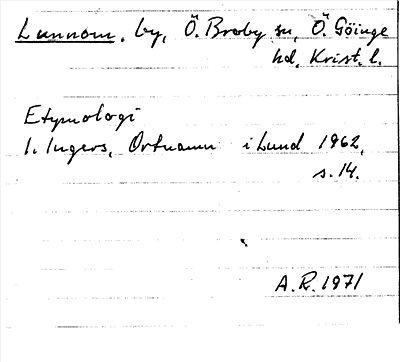 Lunnom, by, Ö. Broby sn, Ö. Göinge
hd, Krist. l.
Etymologi
I. Ingers, Ortnamn i Lund 1962,
s. 14.
A.R. 1971